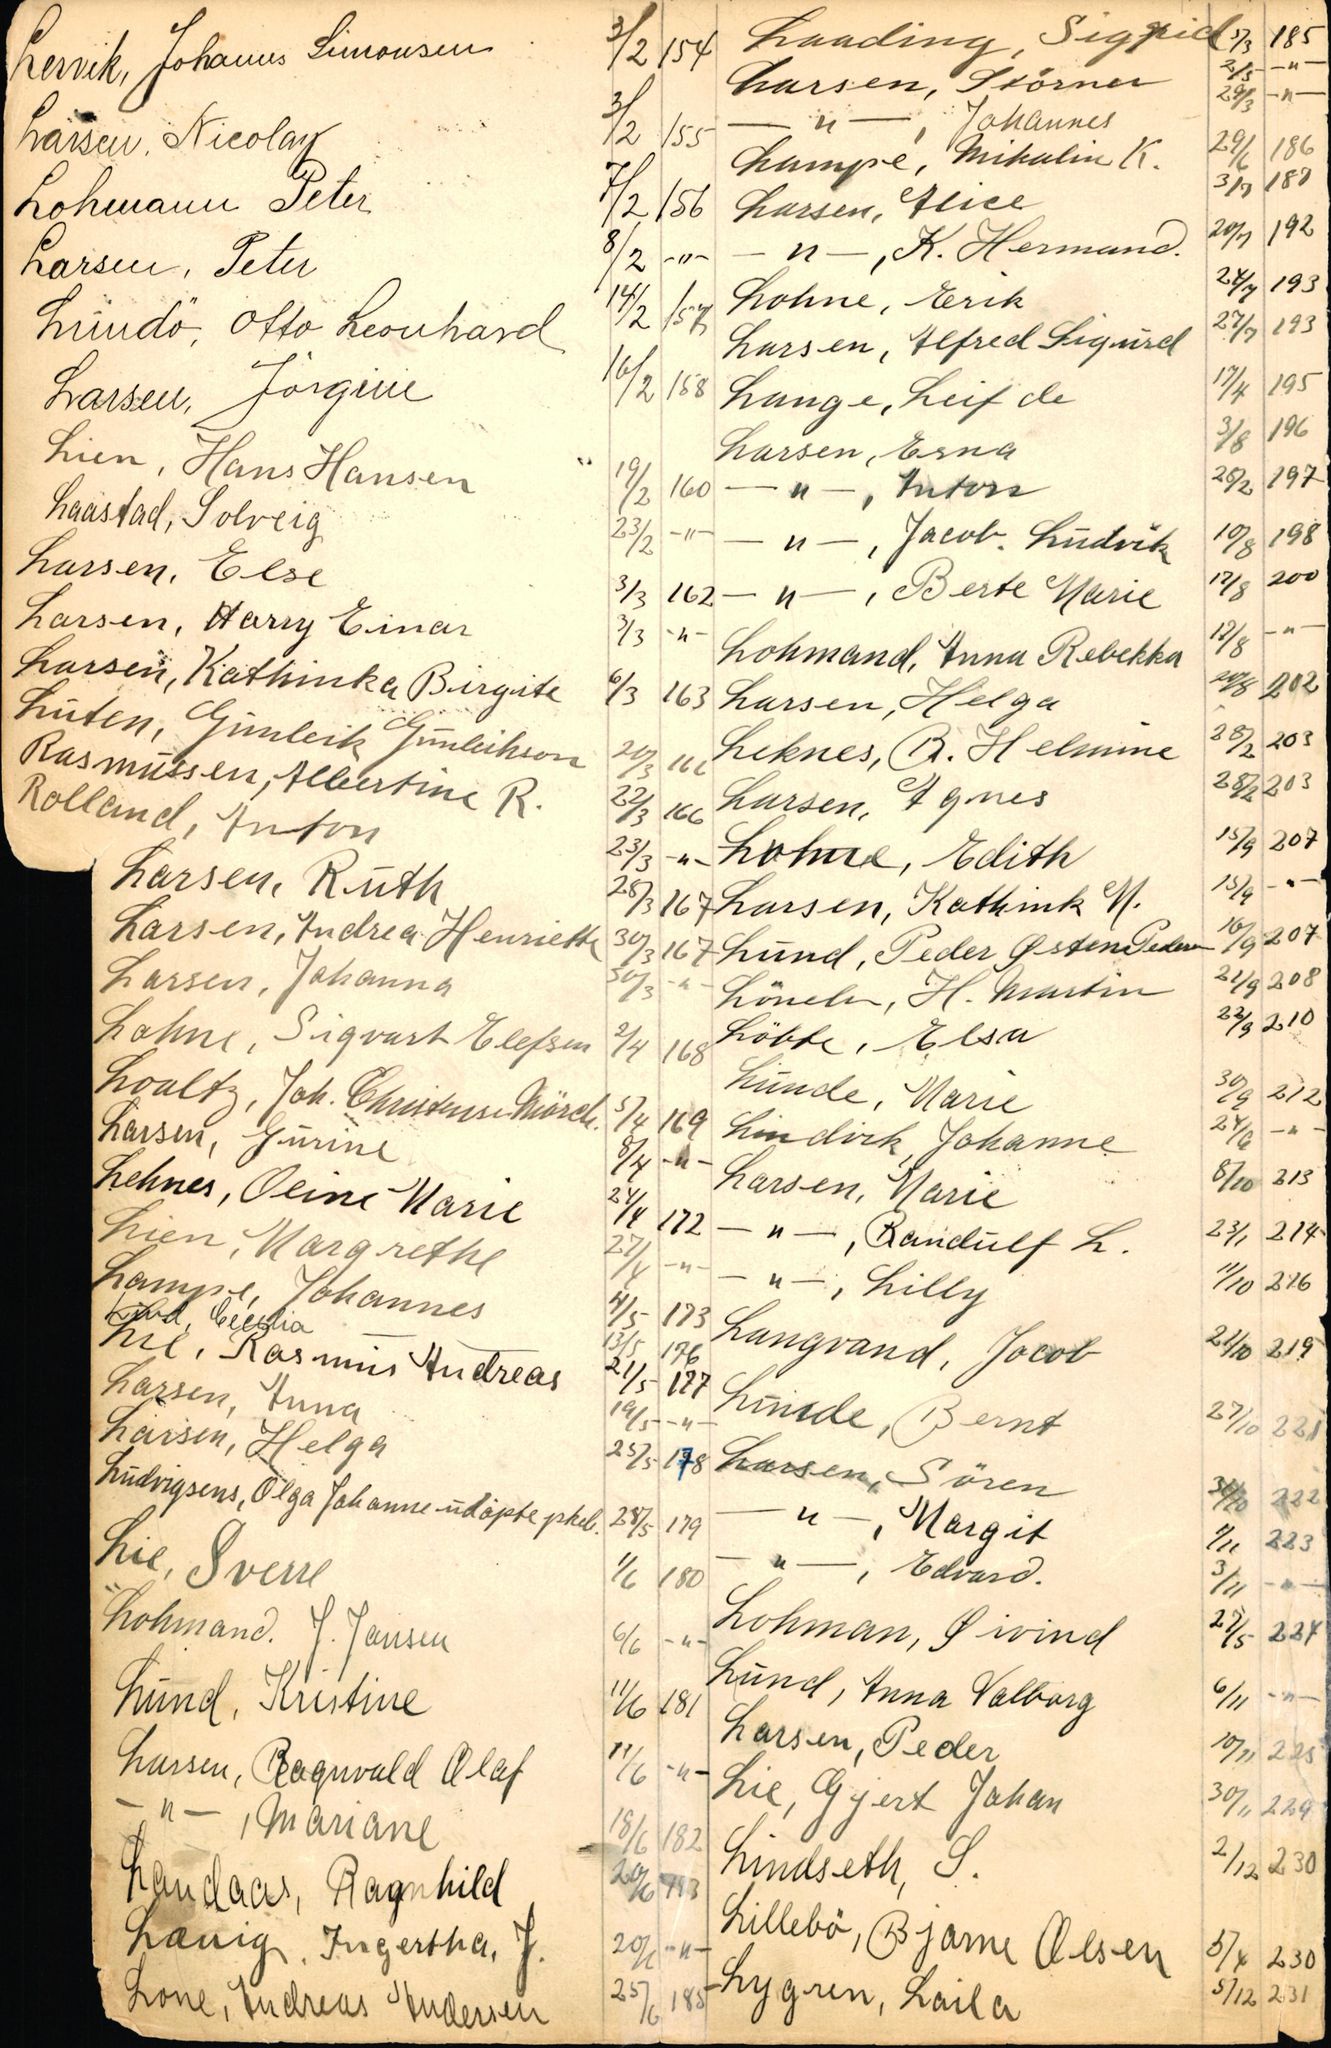 Lervik, Johannes Simonsen 3/2 154
Larsen, Nicolay 3/2 155
Lohmann Peter 7/2 156
Larsen, Peter 8/2 -"-
Lundö, Otto Leonhard 14/2 157
Larsen, Jörgine 16/2 158
Lien, Hans Hansen 19/2 160
Laastad, Solveig 23/2 -"-
Larsen, Else 3/3 162
Larsen, Harry Einar 3/3 -"-
Larsen, Kathinka Birgite 6/3 163
Luten, Gunleik Gunleikson 20/3 166
Rasmussen, Albertine R. 22/3 166
Rolland, Anton 23/3 -"-
Larsen, Ruth 28/3 167
Larsen, Andrea Henriette 30/3 167
Larsen, Johanna 30/3 -"-
Lohne, Sigvart Elefsen 2/4 168
Loaltz, Joh. Mörch. 5/4 169
Larsen, Gurine 8/4 -"-
Lehnes, Oline Marie 24/4 172
Lien, Margrethe 27/4 -"-
Lampe, Johannes 4/5 173
Cecelia 13/5 176
Lie, Rasmus Andreas 21/5 177
Larsen, Anna 19/5 -"-
Larsen, Helga 25/5 178
Ludvigsens, Olga Johanne udöpte 28/5 179
Lie, Sverre 1/6 180
Lohmand. J. Jansen 6/6 -"-
Lund, Kristine 11/6 181
Larsen, Ragnvald Olaf 11/6 -"-
-"-, Mariane 18/6 182
Landaas, Ragnhild 20/6
Lauig, Ingertha, J. 20/6 -"-
Lone, Andreas Andersen 25/6 185
Laading, Sigrid 1/3 185
Larsen, Störner 2/5 -"-
-"-, Johannes 29/3 -"-
Lampe, Mikalin K. 29/6 186
Larsen, Alice 3/7 187
-"-, K. Hermand. 20/7 192
Lohne, Erik 24/7 193
Larsen, Alfred Sigurd 27/7 193
Lange, Leif de 17/4 195
Larsen, Erna 3/8 196
-"-, Anton 28/2 197
-"-, Jacob. Ludvik 10/8 198
-"-, Berte Marie 12/8 200
Lohmand, Anna Rebekka 12/8 -"-
Larsen, Helga 20/8 202
Leknes, B. Helmine 28/2 203
Larsen, Agnes 28/2 203
Lohne, Edith 15/9 207
Larsen, Kathink M. 15/9 -"-
Lund, Peder Østen Peder 16/9 207
Löneln, H. Martin 21/9 208
Löbbe, Elsa 22/9 210
Lunde, Marie 30/9 212
Lindvik, Johanne 24/6 -"-
Larsen, Marie 8/10 213
-"-, Randulf L. 23/1 214
-"-, Lilly 11/10 216
Langvand, Jacob 21/10 219
Lunde, Bernt 27/10 221
Larsen, Sören 222
-"-, Margit 1/11 223
-"-, Edvard. 3/11 -"-
Lohman, Øivind 27/5 224
Lund, Anna Valborg 6/11 -"-
Larsen, Peder 10/11 225
Lie, Gjert Johan 30/11 229
Lindseth, S. 2/12 230
Lillebö, Bjarne Olsen 5/4 230
Lygren, Laila 5/12 231